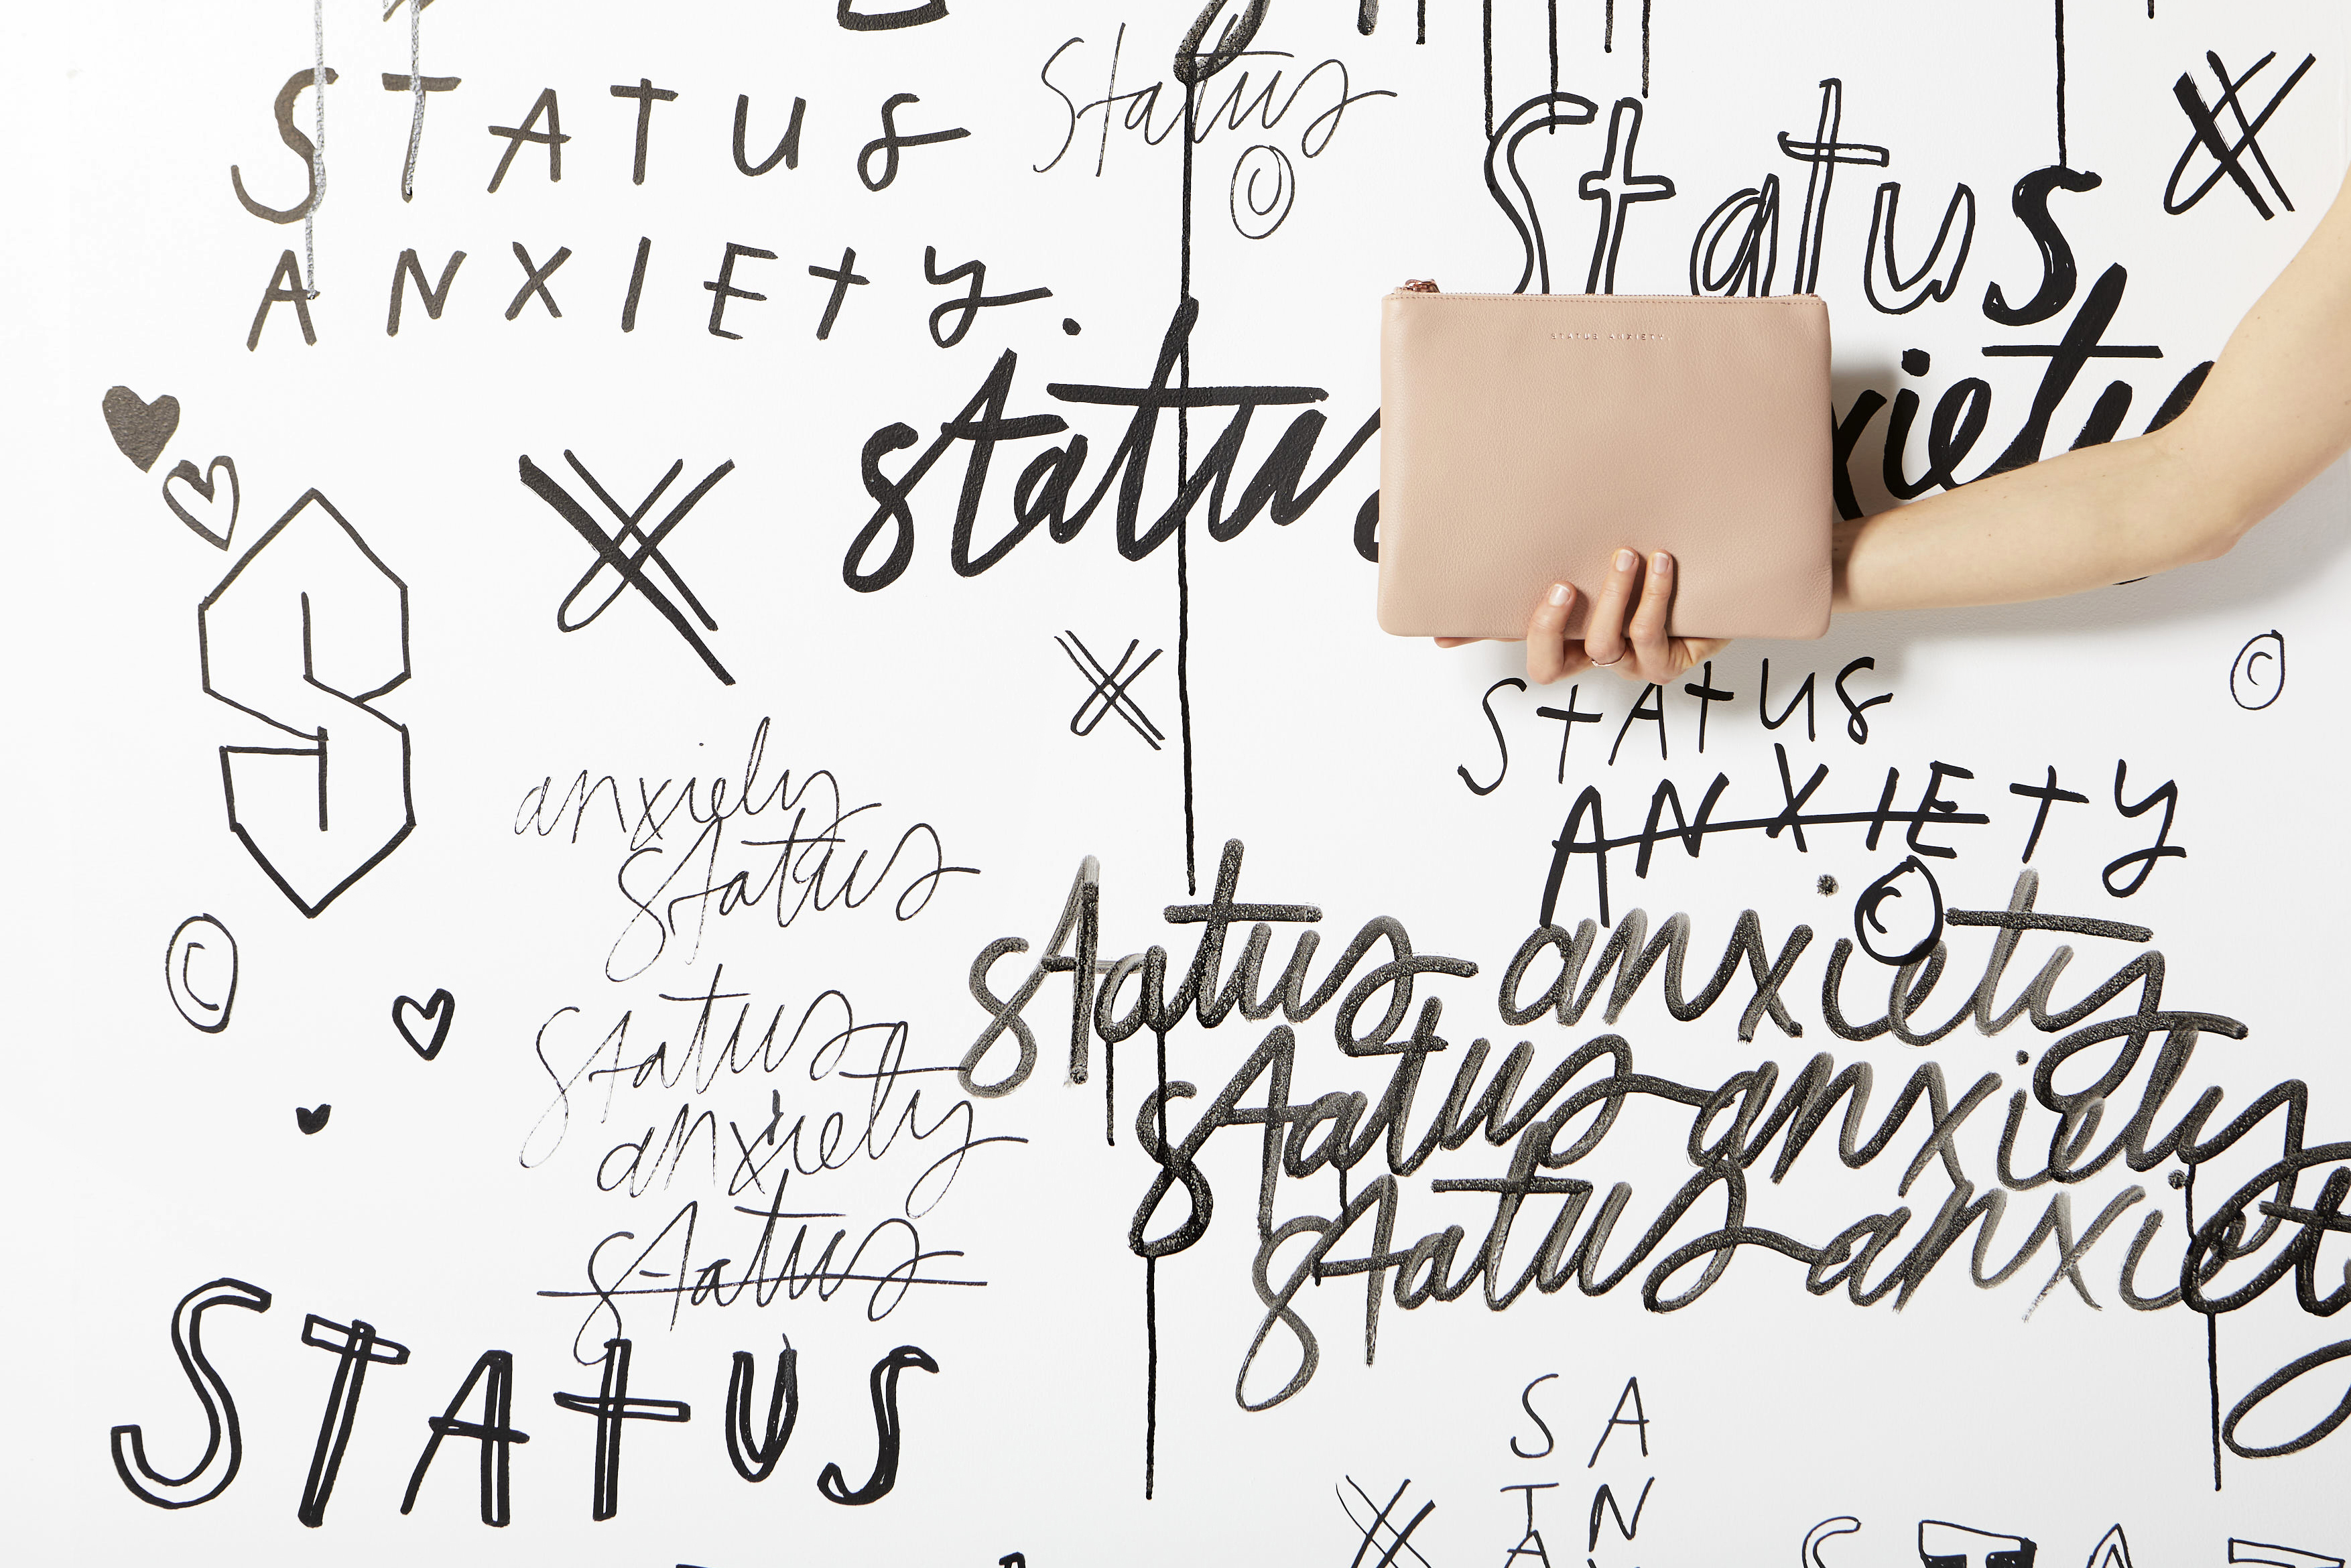 STATUS
ANXIETY.
Status
©
Status
status
xiety
STATUS ANXIETY.
©
STATUS
ANXIETY
©
anxiety
status
©
status
anxiety
status
status anxiety
status anxiety
status anxiety
STATUS
S A
T N
A